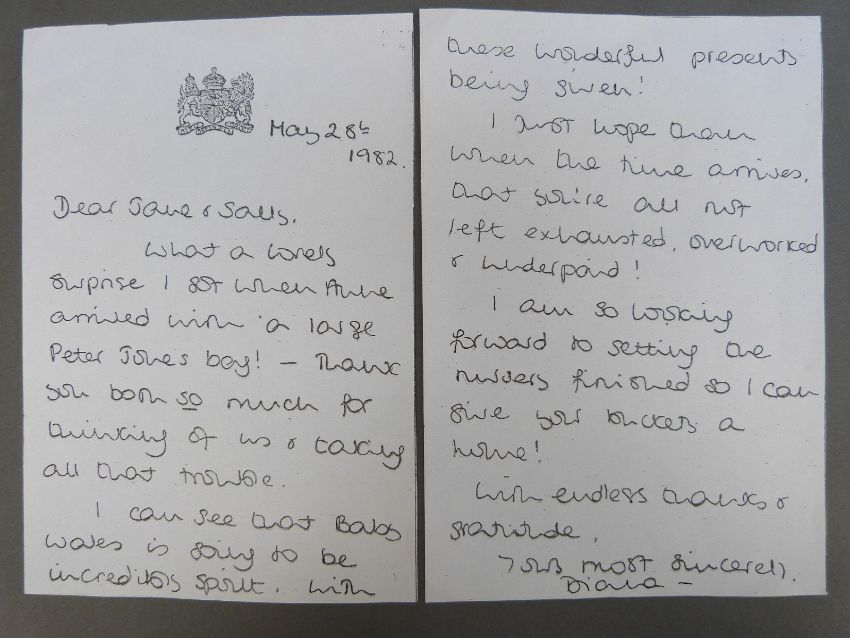 May 28th
1982.
Dear Jane & Sally,
What a lovely
surprise I got when Anne
arrived with a large
Peter Jones box! – Thank
you both so much for
thinking of us & taking
all that trouble.
I can see that Baby
Wales is going to be
incredibly spoilt, with
these wonderful presents
being given!
I just hope that
when the time arrives,
that you're all not
left exhausted, overworked
& underpaid!
I am so looking
forward to getting the
nursery finished so I can
give your a
home!
With endless thanks &
gratitude,
Yours most sincerely,
Diana –